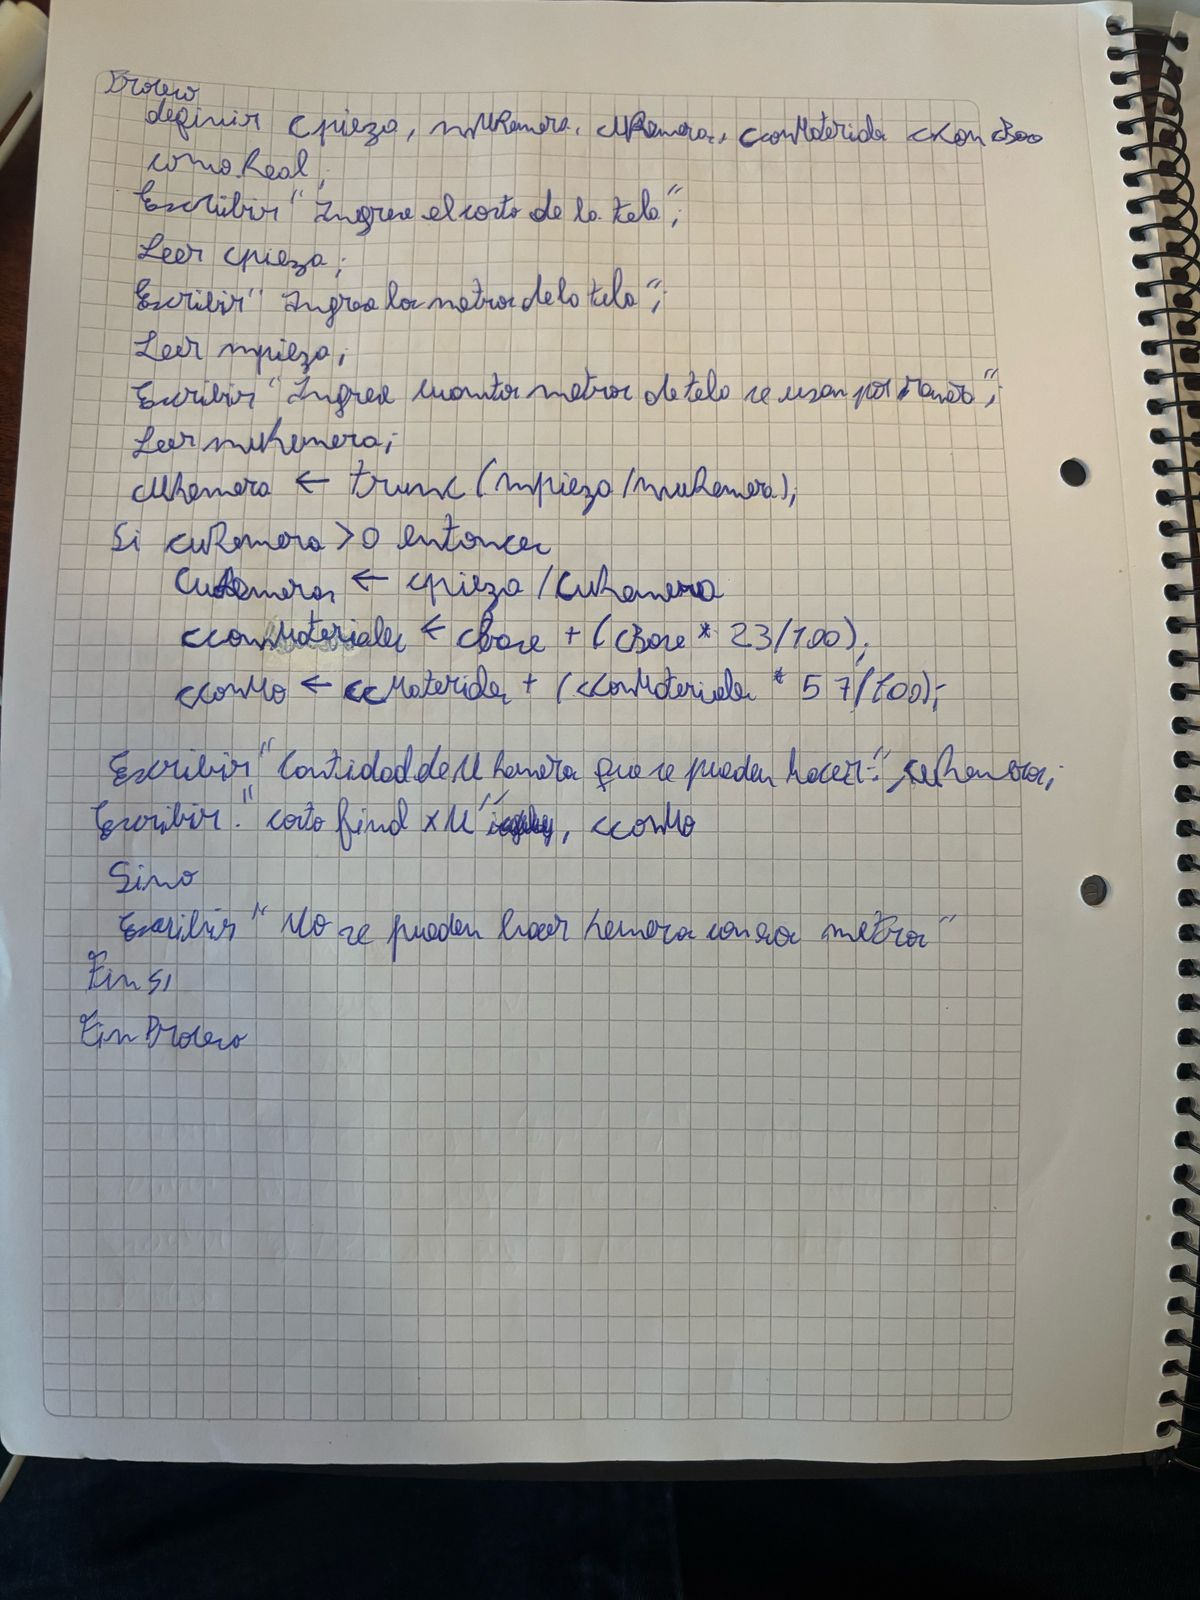 Proceso
definir cpieza, muRemera, cuRemera, cconMateriales cconMO cBase
como Real;
Escribir "Ingrese el costo de la tela";
Leer cpieza;
Escribir "Ingrese los metros de la tela";
Leer mpieza;
Escribir "Ingrese cuantos metros de tela se usan por
Leer muRemera;
cuRemera ← trunc (mpieza/muRemera);
Si cuRemera > 0 entonces
← cpieza / cuRemera
cconMateriales ← cbase + (cBase * 23/100);
cconMo ← ccMateriales + (cconMateriales * 57/100);
Escribir "Cantidad de Remera que se pueden hacer:",
Escribir "costo final x U", cconMo
Sino
Escribir "No se pueden hacer remera con esos metros"
Fin si
Fin Proceso